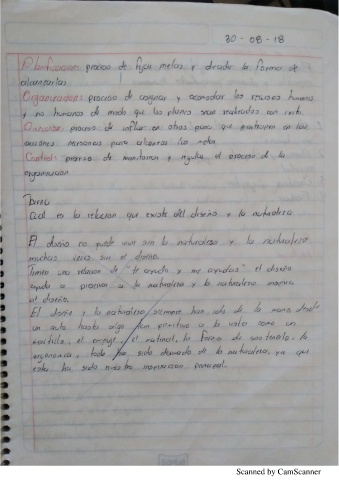 30-08-18
Planificación: proceso de fijar metas y decidir la forma de
alcanzarlas.
Organización: proceso de asignar y acomodar los recursos humanos
y no humanos de modo que los planes sean realizados con exito.
proceso de influir en otros para que en las
acciones necesarias para alcanzar las metas
Control: proceso de monitorear y regular el proceso de la
organización
Tarea
Cual es la relacion que existe del diseño y la naturaleza
El diseño no puede vivir sin la naturaleza y la naturaleza
muchas veces sin el diseño.
Tienen una relacion de "te ayudo y me ayudas" el diseño
ayuda a a la naturaleza y la naturaleza inspira
al diseño.
El diseño y la naturaleza siempre han ido de la mano desde
un auto hasta algo tan primitivo a la vista como un
martillo, el el material, la forma de sostenerlo, la
ergonomia, todo ha sido de la naturaleza, ya que
esta ha sido nuestra inspiracion principal.
Scanned by CamScanner